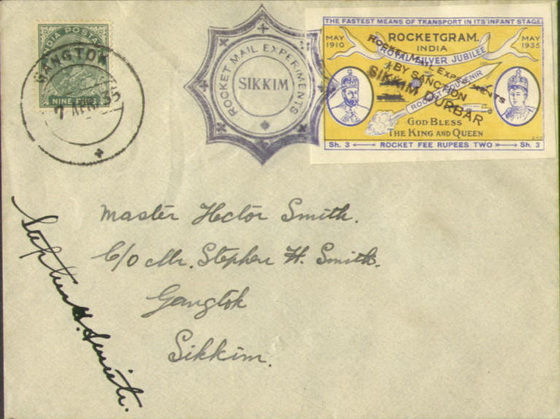 INDIA POSTAGE
NINE PIES
GANGTOK
ROCKET MAIL EXPERIMENTS
SIKKIM
THE FASTEST MEANS OF TRANSPORT IN ITS INFANT STAGE
MAY 1910
ROCKETGRAM.
INDIA
MAY 1935
ROYAL SILVER JUBILEE
ROCKET MAIL EXPERIMENTS
BY SANCTION
SIKKIM DURBAR
ROCKET SOUVENIR
GOD BLESS
THE KING AND QUEEN
Sh. 3 ROCKET FEE RUPEES TWO Sh. 3
Master Hector Smith.
C/o Mr. Stephen H. Smith.
Gangtok
Sikkim.
Stephen H. Smith.